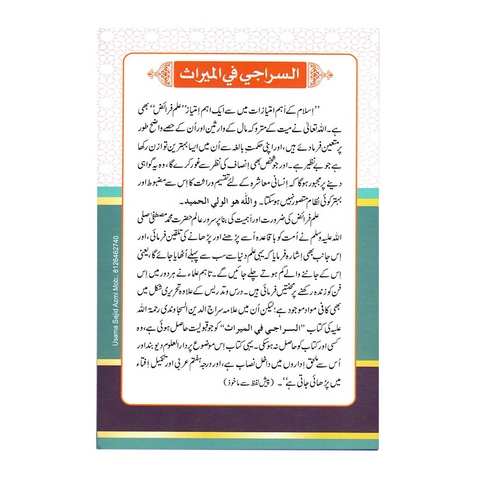 السراجي في الميراث
"اسلام کے اہم امتیازات میں سے ایک اہم امتیاز "علم فرائض" بھی
ہے۔ اللہ تعالیٰ نے میت کے متروکہ مال کے وارثین اور اُن کے حصے واضح طور
پر متعین فرمادئے ہیں، اور اپنی حکمتِ بالغہ سے اُن میں ایسا بہترین توازن رکھا
ہے جو بے نظیر ہے۔ اور جو شخص بھی اِنصاف کی نظر سے غور کرے گا، وہ یہ گواہی
دینے پر مجبور ہوگا کہ اِنسانی معاشرہ کے لئے تقسیم وراثت کا اِس سے مضبوط اور
بہتر کوئی نظام متصور نہیں ہوسکتا۔ واللّٰه هو الولي الحميد۔
علم فرائض کی ضرورت اور اہمیت کی بنا پر سرور عالم حضرت محمد مصطفیٰ صلی
اللہ علیہ وسلم نے اُمت کو باقاعدہ اُسے پڑھنے اور پڑھانے کی تلقین فرمائی، اور
اِس جانب بھی اِشارہ فرمایا کہ یہی علم دنیا سے سب سے پہلے اُٹھایا جائے گا، یعنی
اِس کے جاننے والے کم ہوتے چلے جائیں گے۔ تاہم علماء نے ہر دور میں اِس
فن کو زندہ رکھنے پر محنتیں فرمائی ہیں۔ درس وتدریس کے علاوہ تحریری شکل میں
بھی کافی مواد موجود ہے؛ لیکن اُن میں علامہ سراج الدین السجاوندی رحمۃ اللہ
علیہ کی کتاب "السراجي في الميراث" کو جو قبولیت حاصل ہوئی ہے، وہ
کسی اور کتاب کو حاصل نہ ہوسکی۔ یہی کتاب اِس موضوع پر دارالعلوم دیوبند اور
اُس سے ملحق اِداروں میں داخل نصاب ہے، اور درجۂ ہفتم عربی اور تکمیل اِفتاء
میں پڑھائی جاتی ہے"۔ (پیش لفظ سے ماخوذ)
Usama Sajid Azmi Mob.: 8126462740